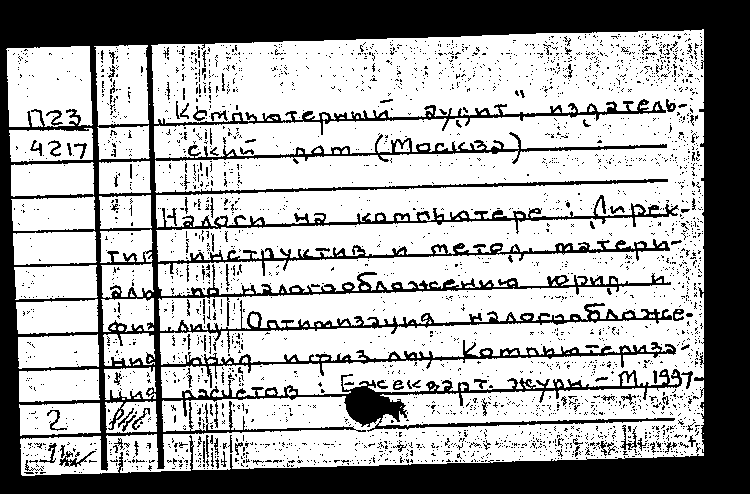 П23 „Компьютерный аудит", издатель-
4217 ский дом (Москва)
Налоги на компьютере : Дирек-
тив инструктив. и метод. матери-
алы по налогообложению юрид. и
физ лиц Оптимизация налогообложе-
ния юрид. и физ. лиц Компьютериза-
ция расчетов : Ежекварт. журн. – М., 1997-
2